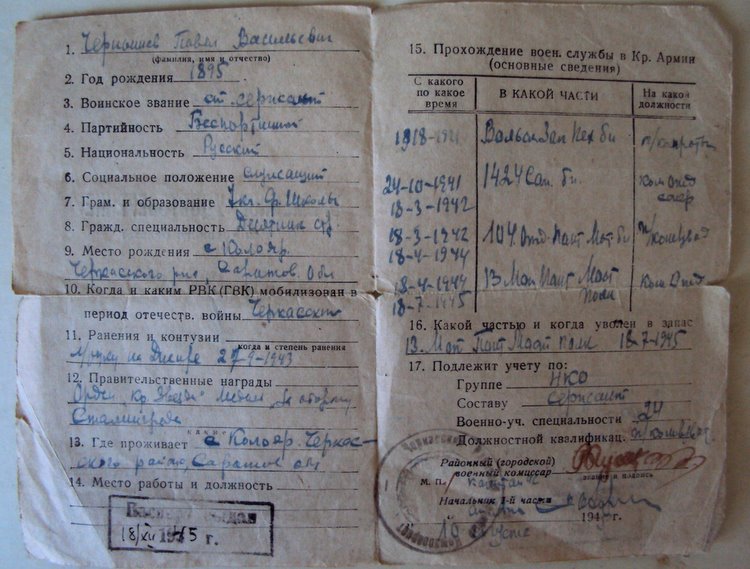 1. Чернышев Павел Васильевич
(фамилия, имя и отчество)
2. Год рождения 1895
3. Воинское звание ст. сержант
4. Партийность Беспартийный
5. Национальность Русский
6. Социальное положение служащий
7. Грам. и образование 7 кл. Ср. Школы
8. Гражд. специальность Десятник
9. Место рождения с Колояр.
Черкасского р-на, Саратов. Обл
10. Когда и каким РВК (ГВК) мобилизован в
период отечеств. войны Черкасским
11. Ранения и контузии
когда и степень ранения
27-9-1943
12. Правительственные награды
Орден Кр. Звезда Медаль За оборону
Сталинграда
какие
13. Где проживает с Колояр. Черкас-
ского района Саратов обл
14. Место работы и должность
18/XII 1945 г.
15. Прохождение воен. службы в Кр. Армии
(основные сведения)
С какого по какое время
В КАКОЙ ЧАСТИ
На какой должности
1918-1921
24-10-1941 1424 Сап. б-н. Ком Отд
18-3-1942 сапер
18-3-1942 104 Отд. Понт Мот. б-н п/ком взвод
18-4-1944
18-4-1944 13 Мот Понт Мост Ком Отд
18-7-1945 Полк
16. Какой частью и когда уволен в запас
13. Мот Понт Мост полк 18-7-1945
17. Подлежит учету по:
Группе НКО
Составу Сержант
Военно-уч. специальности 24
Должностной квалификац. п/ком взвод
Районный (городской)
военный комиссар
звание и подпись
М. П. капитан
Начальник 1-й части
10 августа 1945 г.